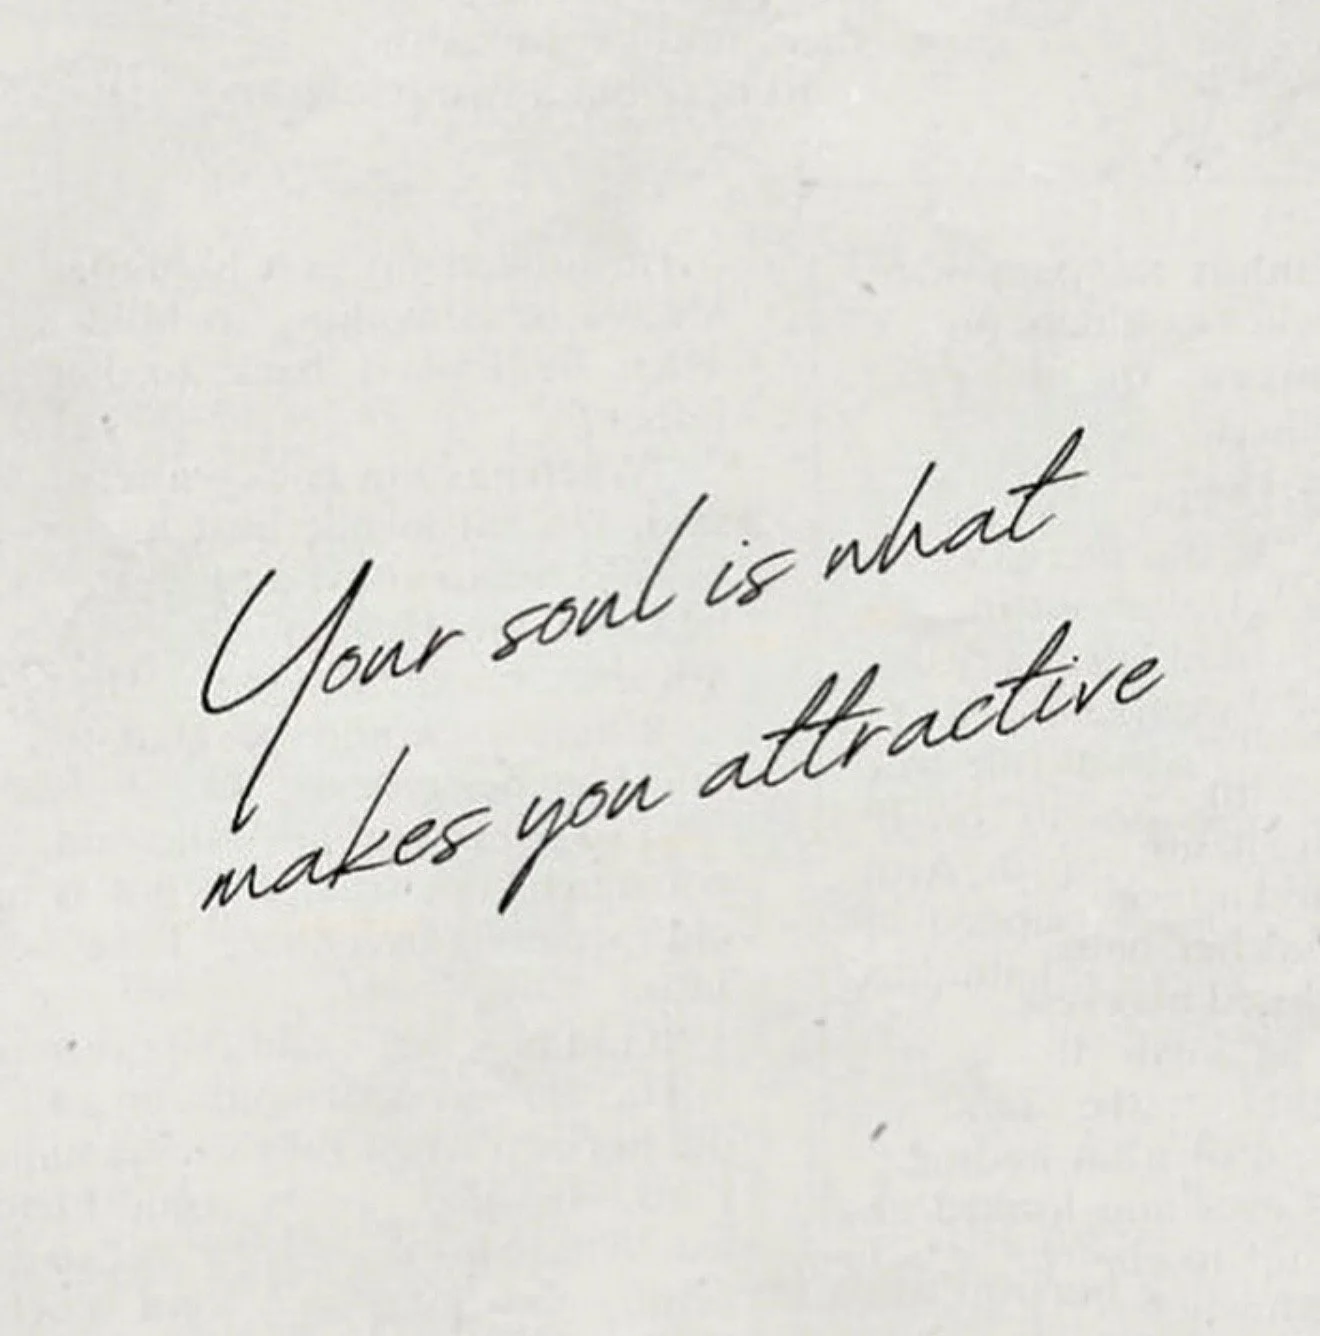 Your soul is what
makes you attractive